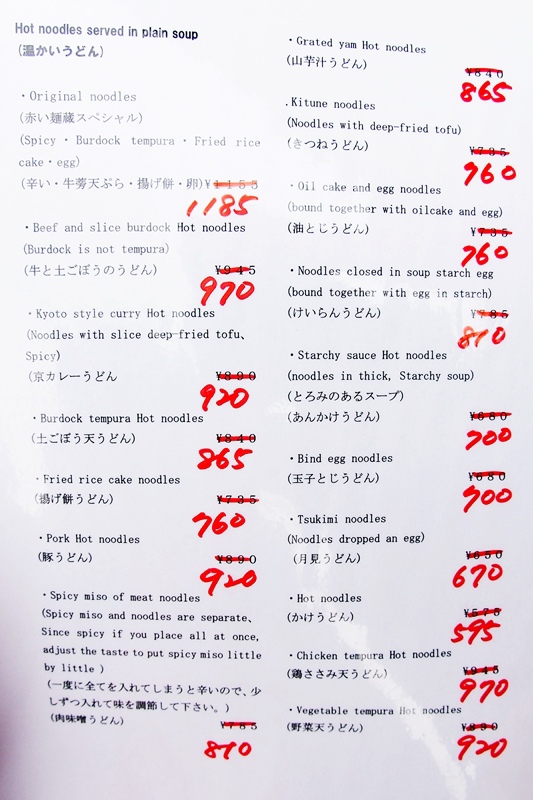 Hot noodles served in plain soup
(温かいうどん)
・Original noodles
(赤い麺蔵スペシャル)
(Spicy・Burdock tempura・Fried rice
cake・egg)
(辛い・牛蒡天ぷら・揚げ餅・卵)¥1155
1185
・Beef and slice burdock Hot noodles
(Burdock is not tempura)
(牛と土ごぼうのうどん)
¥945
970
・Kyoto style curry Hot noodles
(Noodles with slice deep-fried tofu、
Spicy)
(京カレーうどん
¥890
920
・Burdock tempura Hot noodles
(土ごぼう天うどん)
¥840
865
・Fried rice cake noodles
(揚げ餅うどん)
¥735
760
・Pork Hot noodles
(豚うどん)
¥890
920
・Spicy miso of meat noodles
(Spicy miso and noodles are separate、
Since spicy if you place all at once,
adjust the taste to put spicy miso little
by little )
(一度に全てを入れてしまうと辛いので、少
しずつ入れて味を調節して下さい。)
(肉味噌うどん)
¥785
810
・Grated yam Hot noodles
(山芋汁うどん)
¥840
865
.Kitune noodles
(Noodles with deep-fried tofu)
(きつねうどん)
¥735
760
・Oil cake and egg noodles
(bound together with oilcake and egg)
(油とじうどん)
¥735
760
・Noodles closed in soup starch egg
(bound together with egg in starch)
(けいらんうどん)
¥785
810
・Starchy sauce Hot noodles
(noodles in thick, Starchy soup)
(とろみのあるスープ)
(あんかけうどん)
¥680
700
・Bind egg noodles
(玉子とじうどん)
¥680
700
・Tsukimi noodles
(Noodles dropped an egg)
(月見うどん)
¥650
670
・Hot noodles
(かけうどん)
¥575
595
・Chicken tempura Hot noodles
(鶏ささみ天うどん)
¥945
970
・Vegetable tempura Hot noodles
(野菜天うどん)
¥890
920